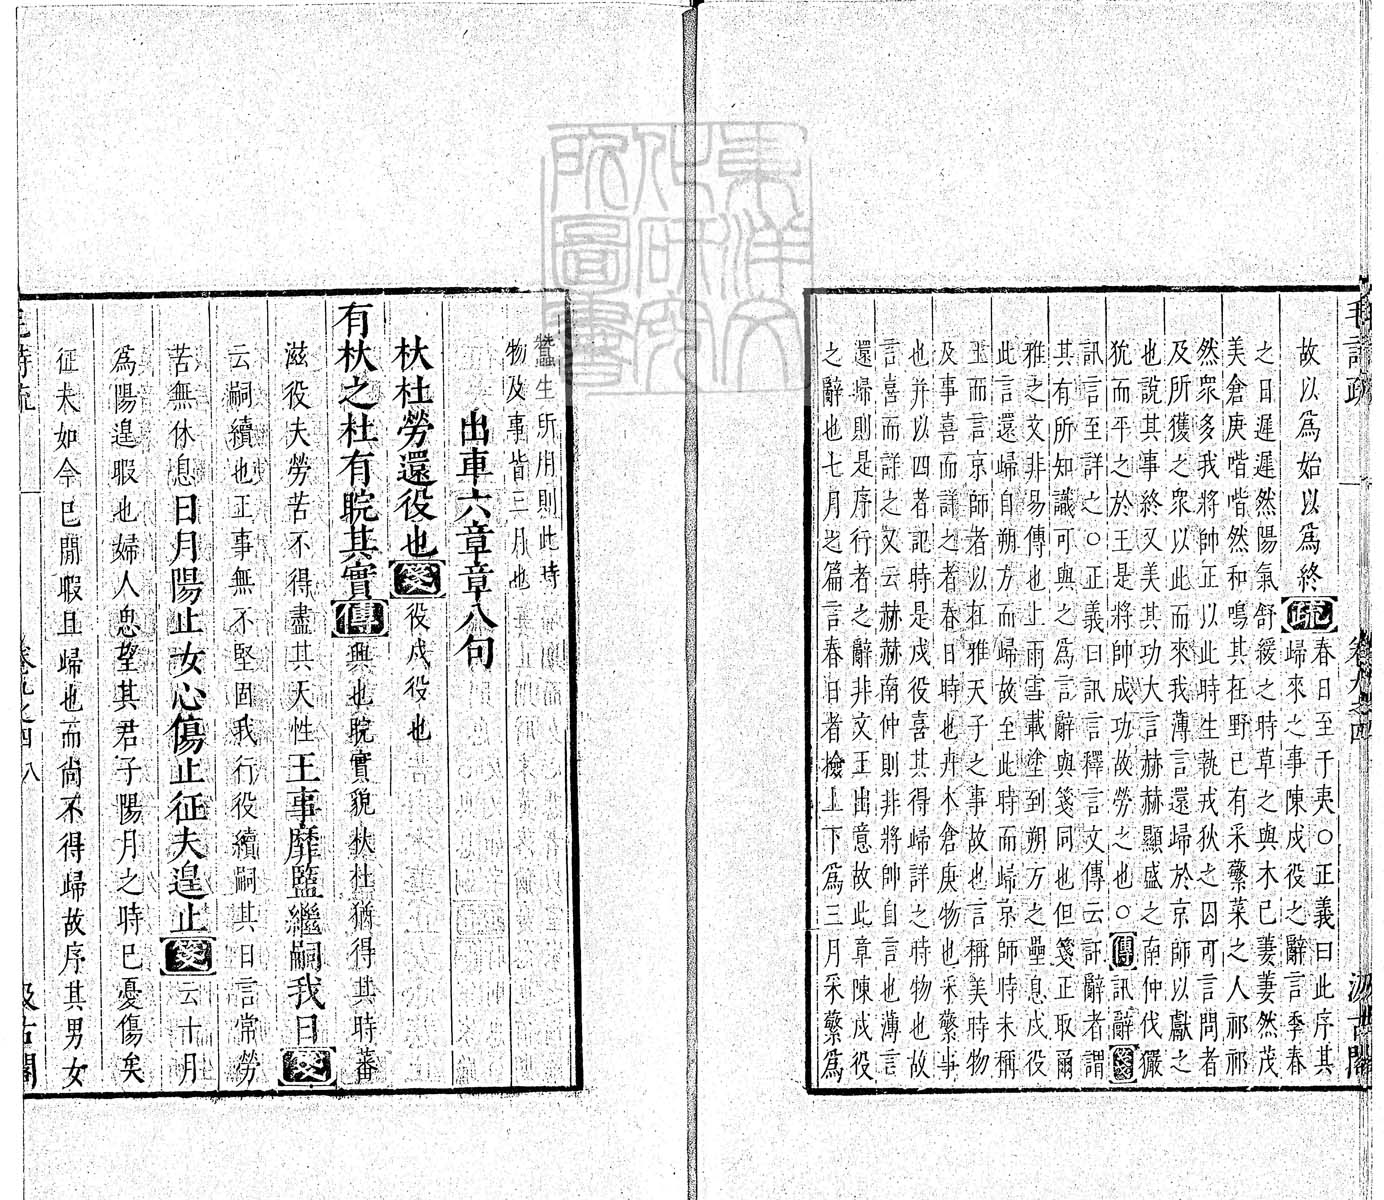 毛詩疏 卷九之四 汲古閣
故以爲始以爲終疏春日至于夷○正義曰此序其
歸來之事陳戍役之辭言季春
之日遲遲然陽氣舒緩之時草之與木已萋萋然茂
美倉庚喈喈然和鳴其在野已有采蘩菜之人祁祁
然衆多我將帥正以此時生執戎狄之囚可言問者
及所獲之衆以此而來我薄言還歸於京師以獻之
也說其事終又美其功大言赫赫顯盛之南仲伐玁
狁而平之於王是將帥成功故勞之也○傳訊辭箋
訊言至詳之○正義曰訊言釋言文傳云訊辭者謂
其有所知識可與之爲言辭與箋同也但箋正取爾
雅之文非易傳也上雨雪載塗到朔方之壘息戍役
此言還歸自朔方而歸故至此時而歸京師時未稱
王而言京師者以在雅天子之事故也言稱美時物
及事喜而詳之者春日時也卉木倉庚物也采蘩事
也并以四者記時是戍役喜其得歸詳之時物也故
言喜而詳之又云赫赫南仲則非將帥自言也薄言
還歸則是序行者之辭非文王出意故此章陳戍役
之辭也七月之篇言春日者檢上下爲三月采蘩爲
蠶生所用則此時
物及事皆三月也
出車六章章八句
杕杜勞還役也箋役戍役也
有杕之杜有睆其實傳興也睆實貌杕杜猶得其時蕃
滋役夫勞苦不得盡其天性王事靡盬繼嗣我日箋
云嗣續也王事無不堅固我行役續嗣其日言常勞
苦無休息日月陽止女心傷止征夫遑止箋云十月
爲陽遑暇也婦人思望其君子陽月之時已憂傷矣
征夫如今已閒暇且歸也而尚不得歸故序其男女
毛詩疏 卷九之四 八 汲古閣